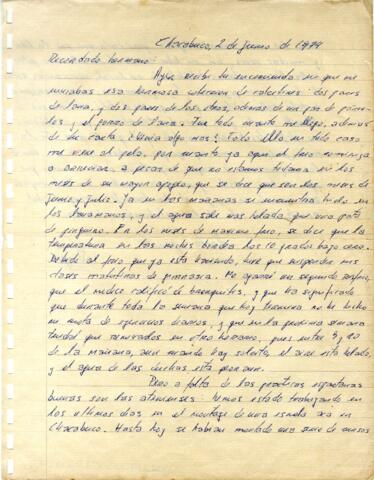 Chacabuco, 2 de junio de 1974
Recordado hermano:
Ayer recibí tu encomienda en que me
enviabas esa hermosa colección de calcetines: dos pares
de lana, y dos pares de los otros, además de un par de
y el gorro de lana. Fue todo cuanto me llegó, además
de tu carta. ¿Venía algo más? Todo ello en todo caso
me viene al pelo, por cuanto ya aquí el frío comienza
a arreciar, a pesar de que no estamos todavía en los
meses de su mayor apogeo, que se dice que son los meses de
Junio y Julio. Ya en las mañanas se encuentra todo en
los lavamanos, y el agua sale más helada que una pata
de pingüino. En los meses de máximo frío, se dice que la
temperatura en las noches bordea los 10 grados bajo cero.
Debido al frío que ya está haciendo, tuve que suspender mis
clases matutinas de gimnasia. Me agarré un segundo resfrío,
que el médico calificó de bronquitis, y que ha significado
que durante toda la semana que hoy termina no he hecho
mi cuota de ejercicios diarios, y que en la próxima semana
tendré que renovarlos en otro horario, pues entre 9 y 10
de la mañana, aun cuando hay solcito, el aire está helado,
y el agua de las duchas está
Pero a falta de las prácticas espartanas
buenas son las atenienses: hemos estado trabajando en
los últimos días en el montaje de una escuela acá en
Chacabuco. Hasta hoy se habían montado una serie de cursos